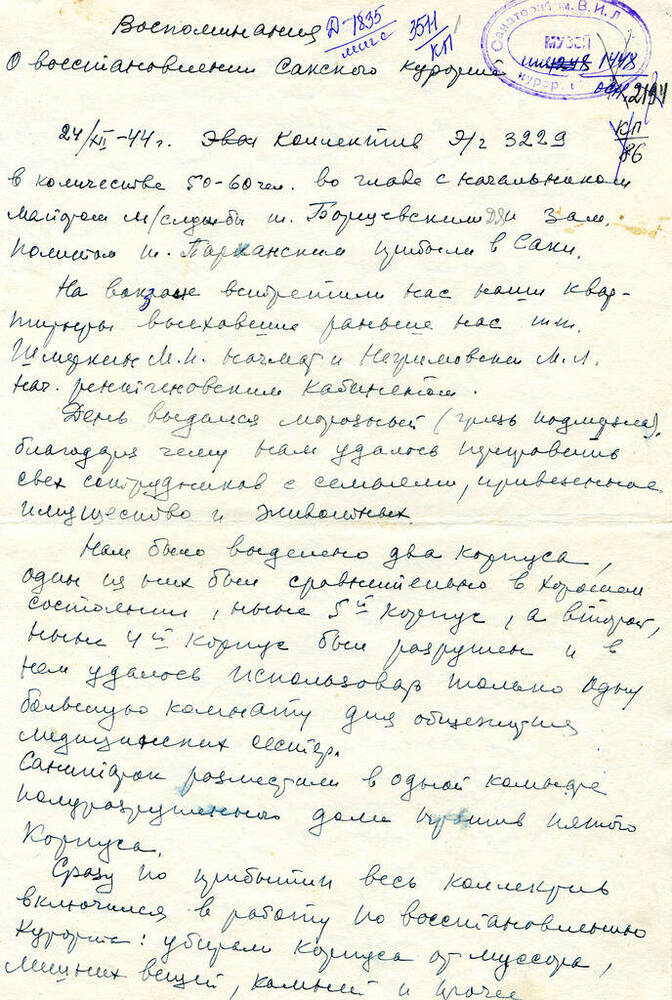 Воспоминания Д-1835 3511
КП
О восстановлении Сакского курорта
Санаторий им. В.И.Л
МУЗЕЙ
1448
2194
КП
86
24/XII-44 г. Эвак коллектив Э/г 3229
в количестве 50-60 чел. во главе с начальником
майором м/службы т. Борщевским и Зам.
Политом т. Барканским прибыли в Саки.
На вокзале встретили нас наши квар-
тирьеры выехавшие раньше нас т.т.
Шмеркин М.И. начмат и Негримовская М.Л.
нач. рентгеновским кабинетом.
День выдался морозный (грязь подмерзла),
благодаря чему нам удалось переправить
свех сотрудников с семьями, привезенное
имущество и животных.
Нам было выделено два корпуса,
один из них был сравнительно в хорошем
состоянии, ныне 5й корпус, а второй,
ныне 4й корпус был разрушен и в
нем удалось использовать только одну
большую комнату для общежития
медицинских сестер.
Санитарок разместили в одной комнате
полуразрушенного дома против пятого
корпуса.
Сразу по прибытии весь коллектив
включился в работу по восстановлению
курорта: убирали корпуса от муссора,
лишних вещей, камней и прочее